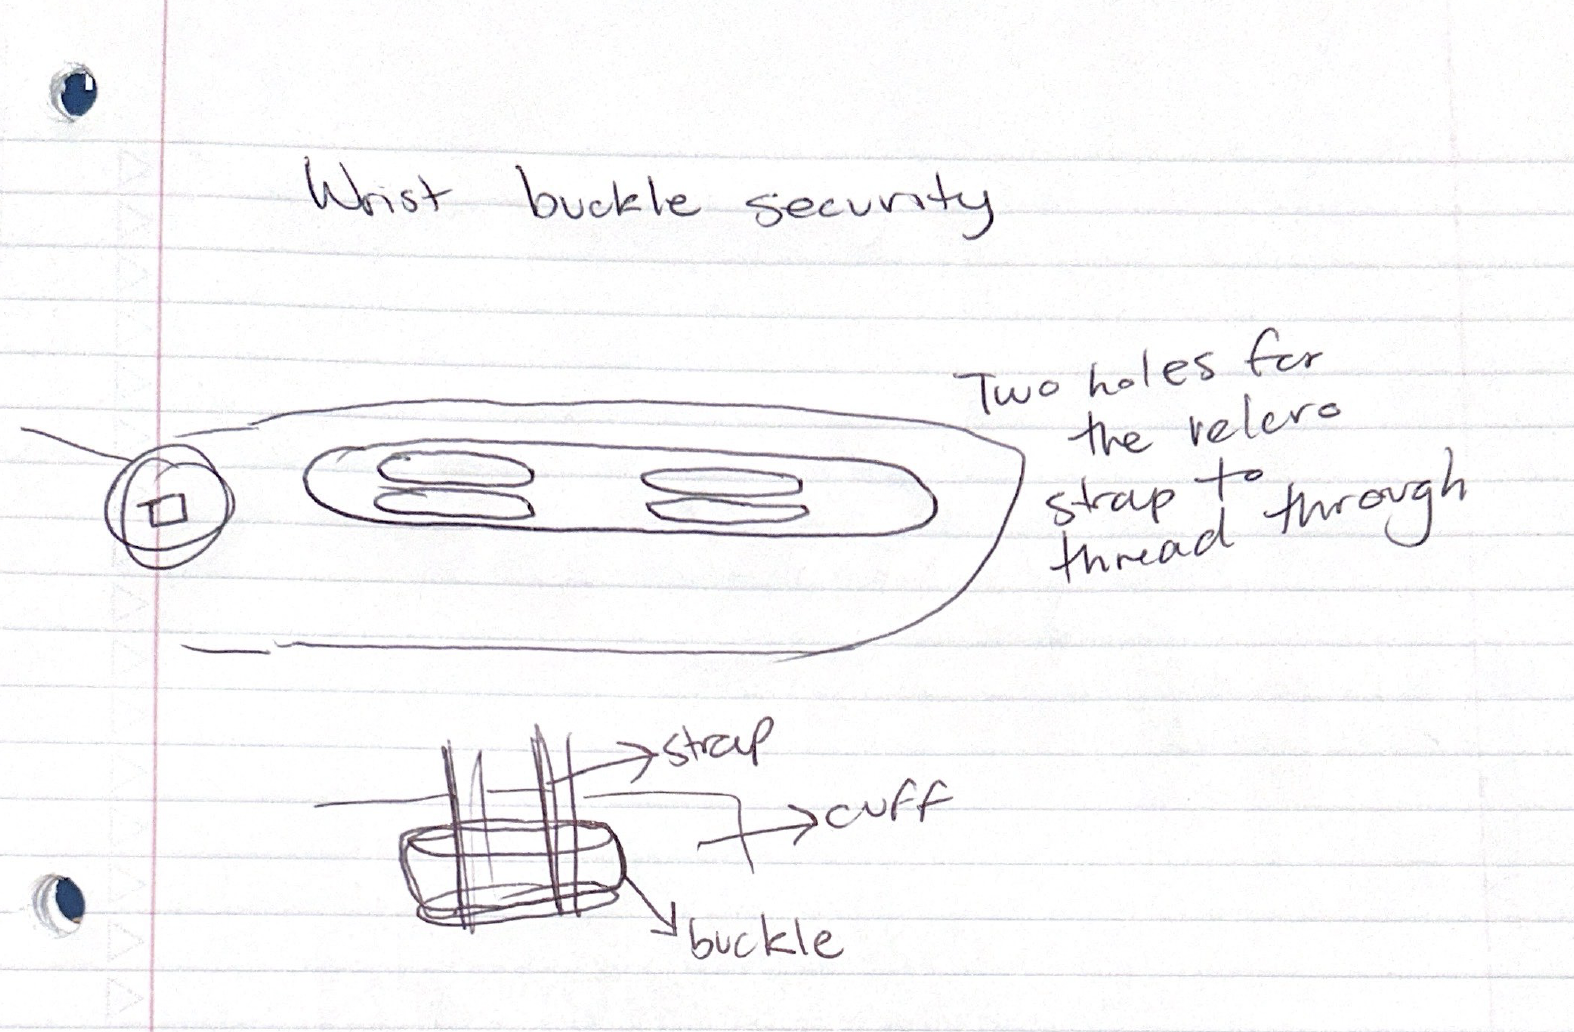 Wrist buckle security
Two holes for
the velcro
strap to
thread through
strap
cuff
buckle